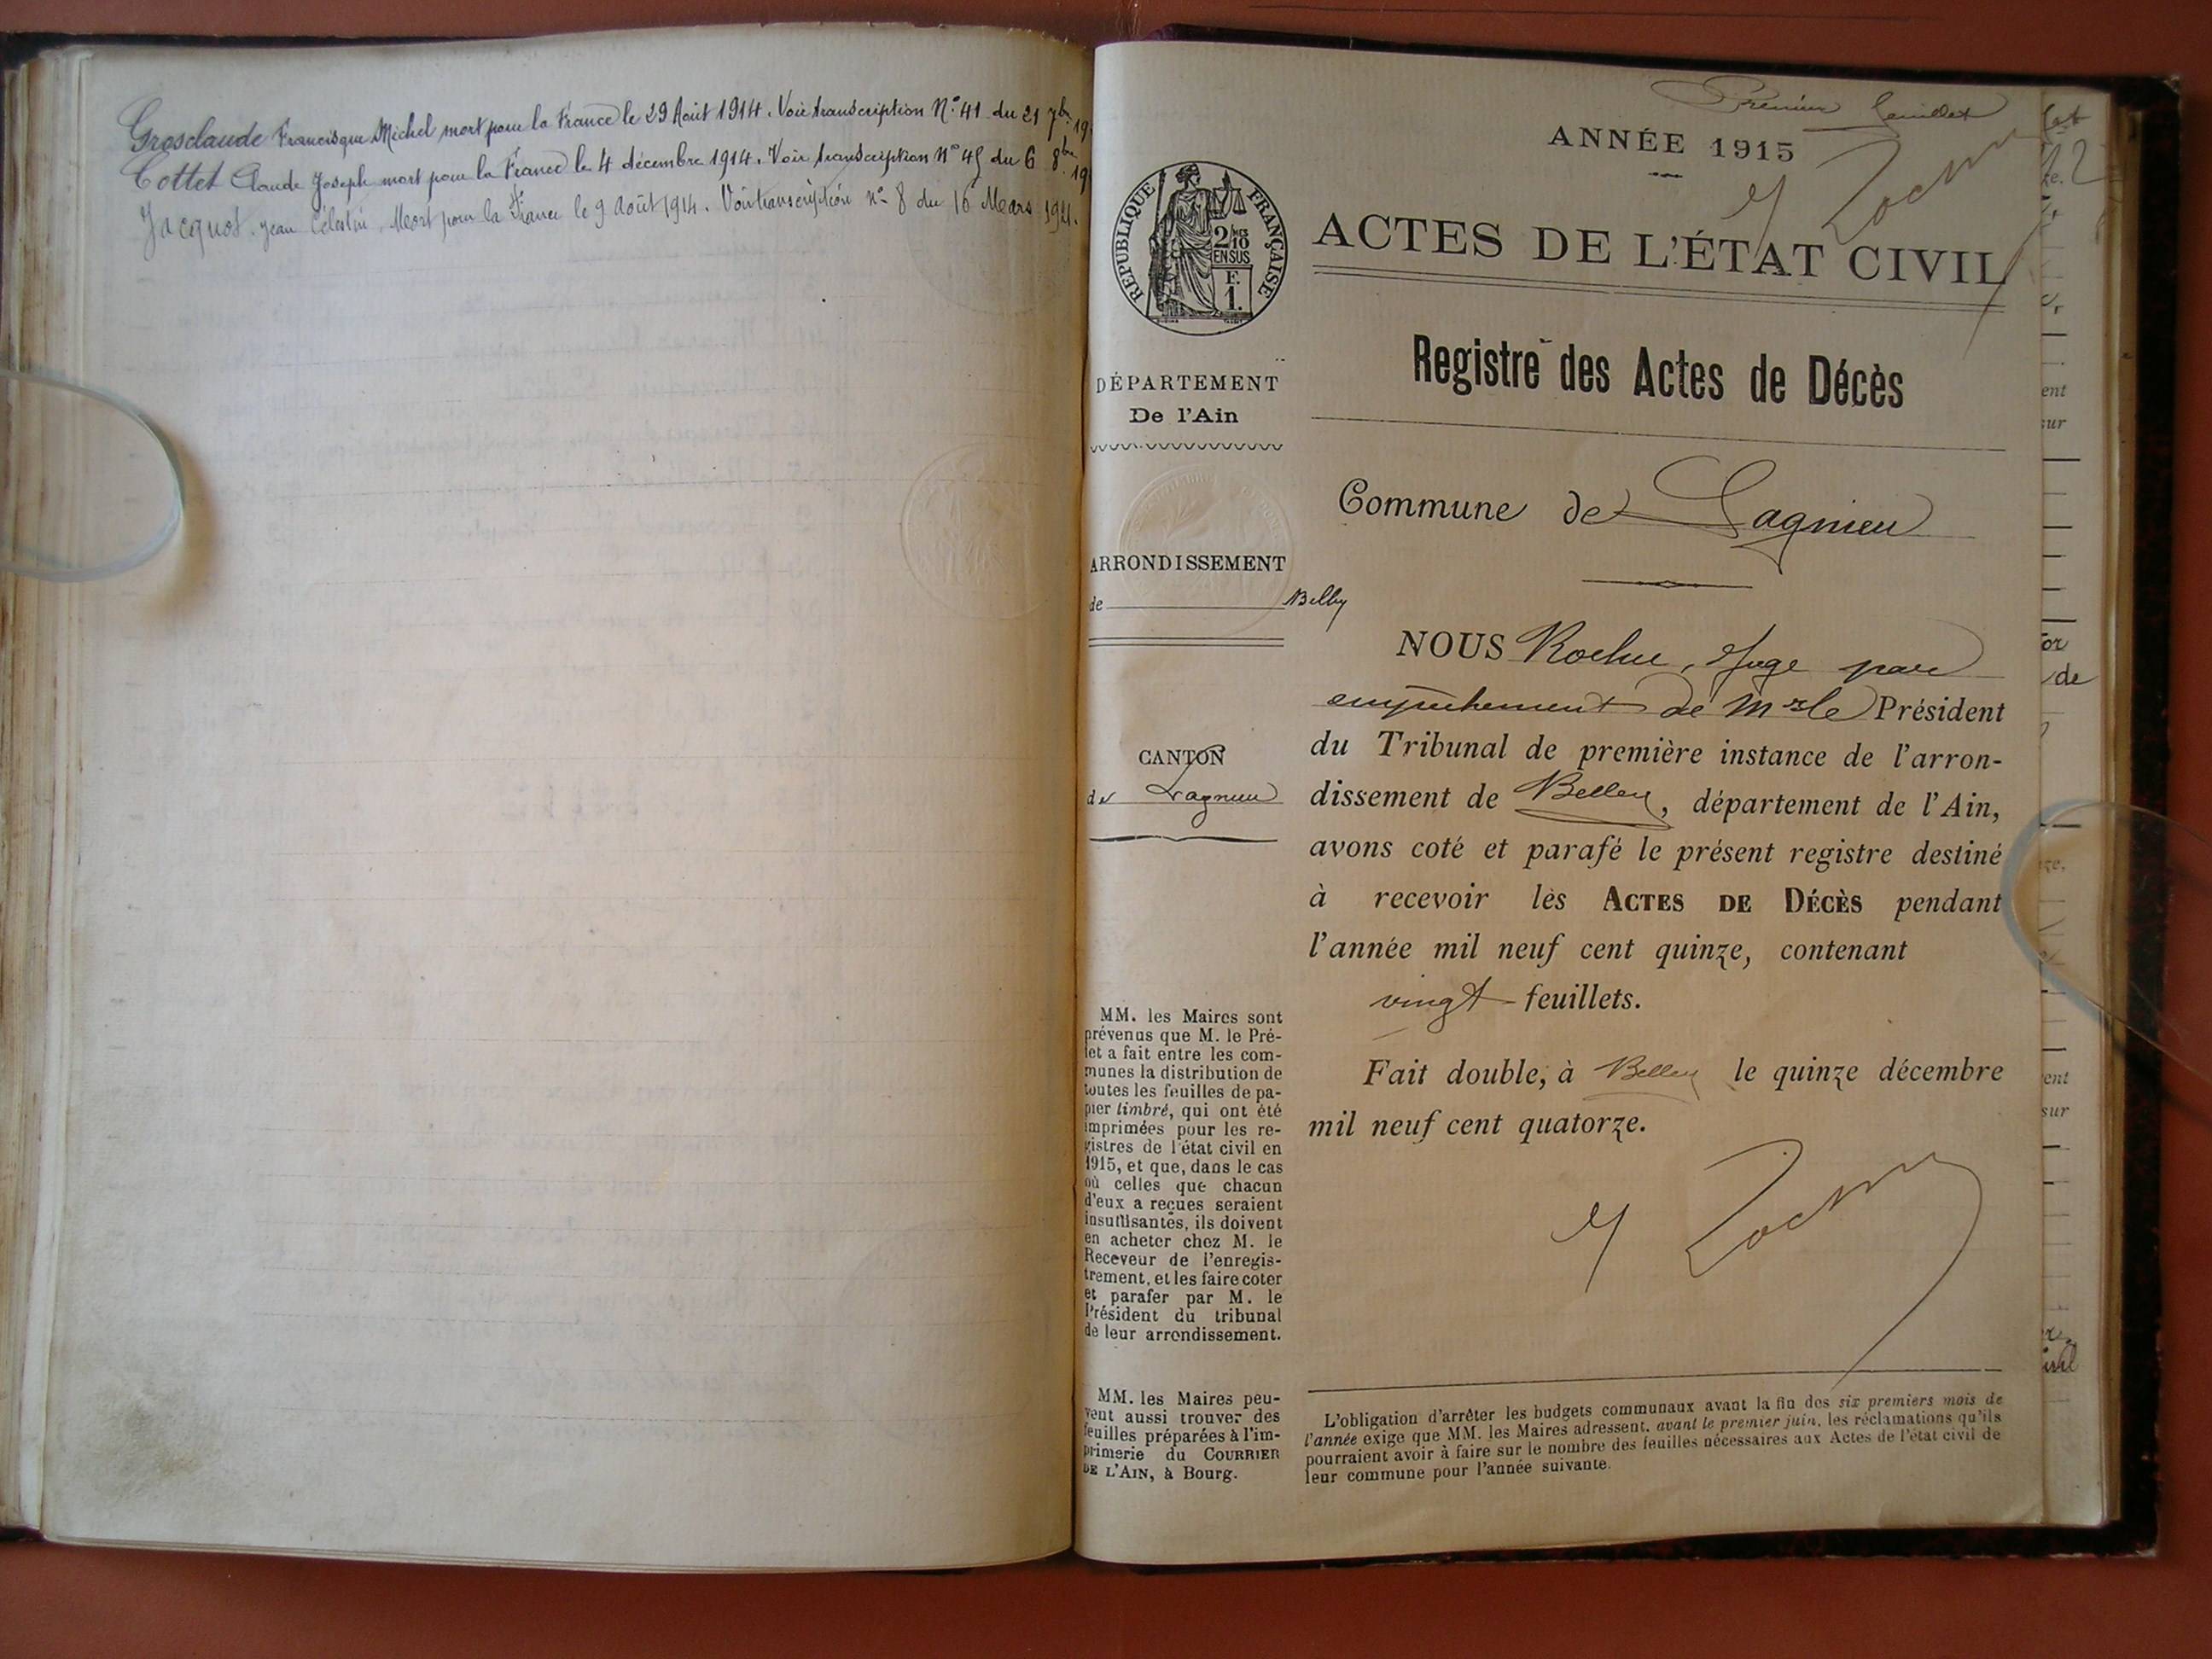 Grosclaude Francisque Michel mort pour la France le 29 Août 1914. Voir transcription N° 41 du 21 7bre 19
Cottet Claude Joseph mort pour la France le 4 décembre 1914. Voir transcription N° 45 du 6 8bre 19
Jacquot. Jean Célestin, Mort pour la France le 9 Août 1914. Voir transcription n° 8 du 16 Mars 1921.
Premier feuillet
ANNÉE 1915
RÉPUBLIQUE FRANÇAISE
2/10
EN SUS
F.
1.
ACTES DE L'ÉTAT CIVIL
Registre des Actes de Décès
DÉPARTEMENT
De l'Ain
Commune de Lagnieu
ARRONDISSEMENT
de Belley
CANTON
de Lagnieu
NOUS Juge par
empêchement de Mr le Président
du Tribunal de première instance de l'arron-
dissement de Belley, département de l'Ain,
avons coté et parafé le présent registre destiné
à recevoir les ACTES DE DÉCÈS pendant
l'année mil neuf cent quinze, contenant
vingt feuillets.
Fait double, à Belley le quinze décembre
mil neuf cent quatorze.
MM. les Maires sont
prévenus que M. le Pré-
fet a fait entre les com-
munes la distribution de
toutes les feuilles de pa-
pier timbré, qui ont été
imprimées pour les re-
gistres de l'état civil en
1915, et que, dans le cas
où celles que chacun
d'eux a reçues seraient
insuffisantes, ils doivent
en acheter chez M. le
Receveur de l'enregis-
trement, et les faire coter
et parafer par M. le
Président du tribunal
de leur arrondissement.
MM. les Maires peu-
vent aussi trouver des
feuilles préparées à l'im-
primerie du COURRIER
DE L'AIN, à Bourg.
L'obligation d'arrêter les budgets communaux avant la fin des six premiers mois de
l'année exige que MM. les Maires adressent, avant le premier juin, les réclamations qu'ils
pourraient avoir à faire sur le nombre des feuilles nécessaires aux Actes de l'état civil de
leur commune pour l'année suivante.